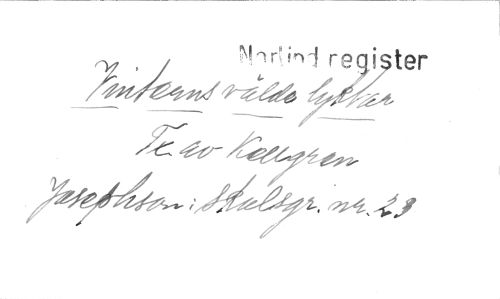 Norlind register
Vinterns välde lyktar
Tx. av Kellgren
Josephson: Skolsgr. nr. 23